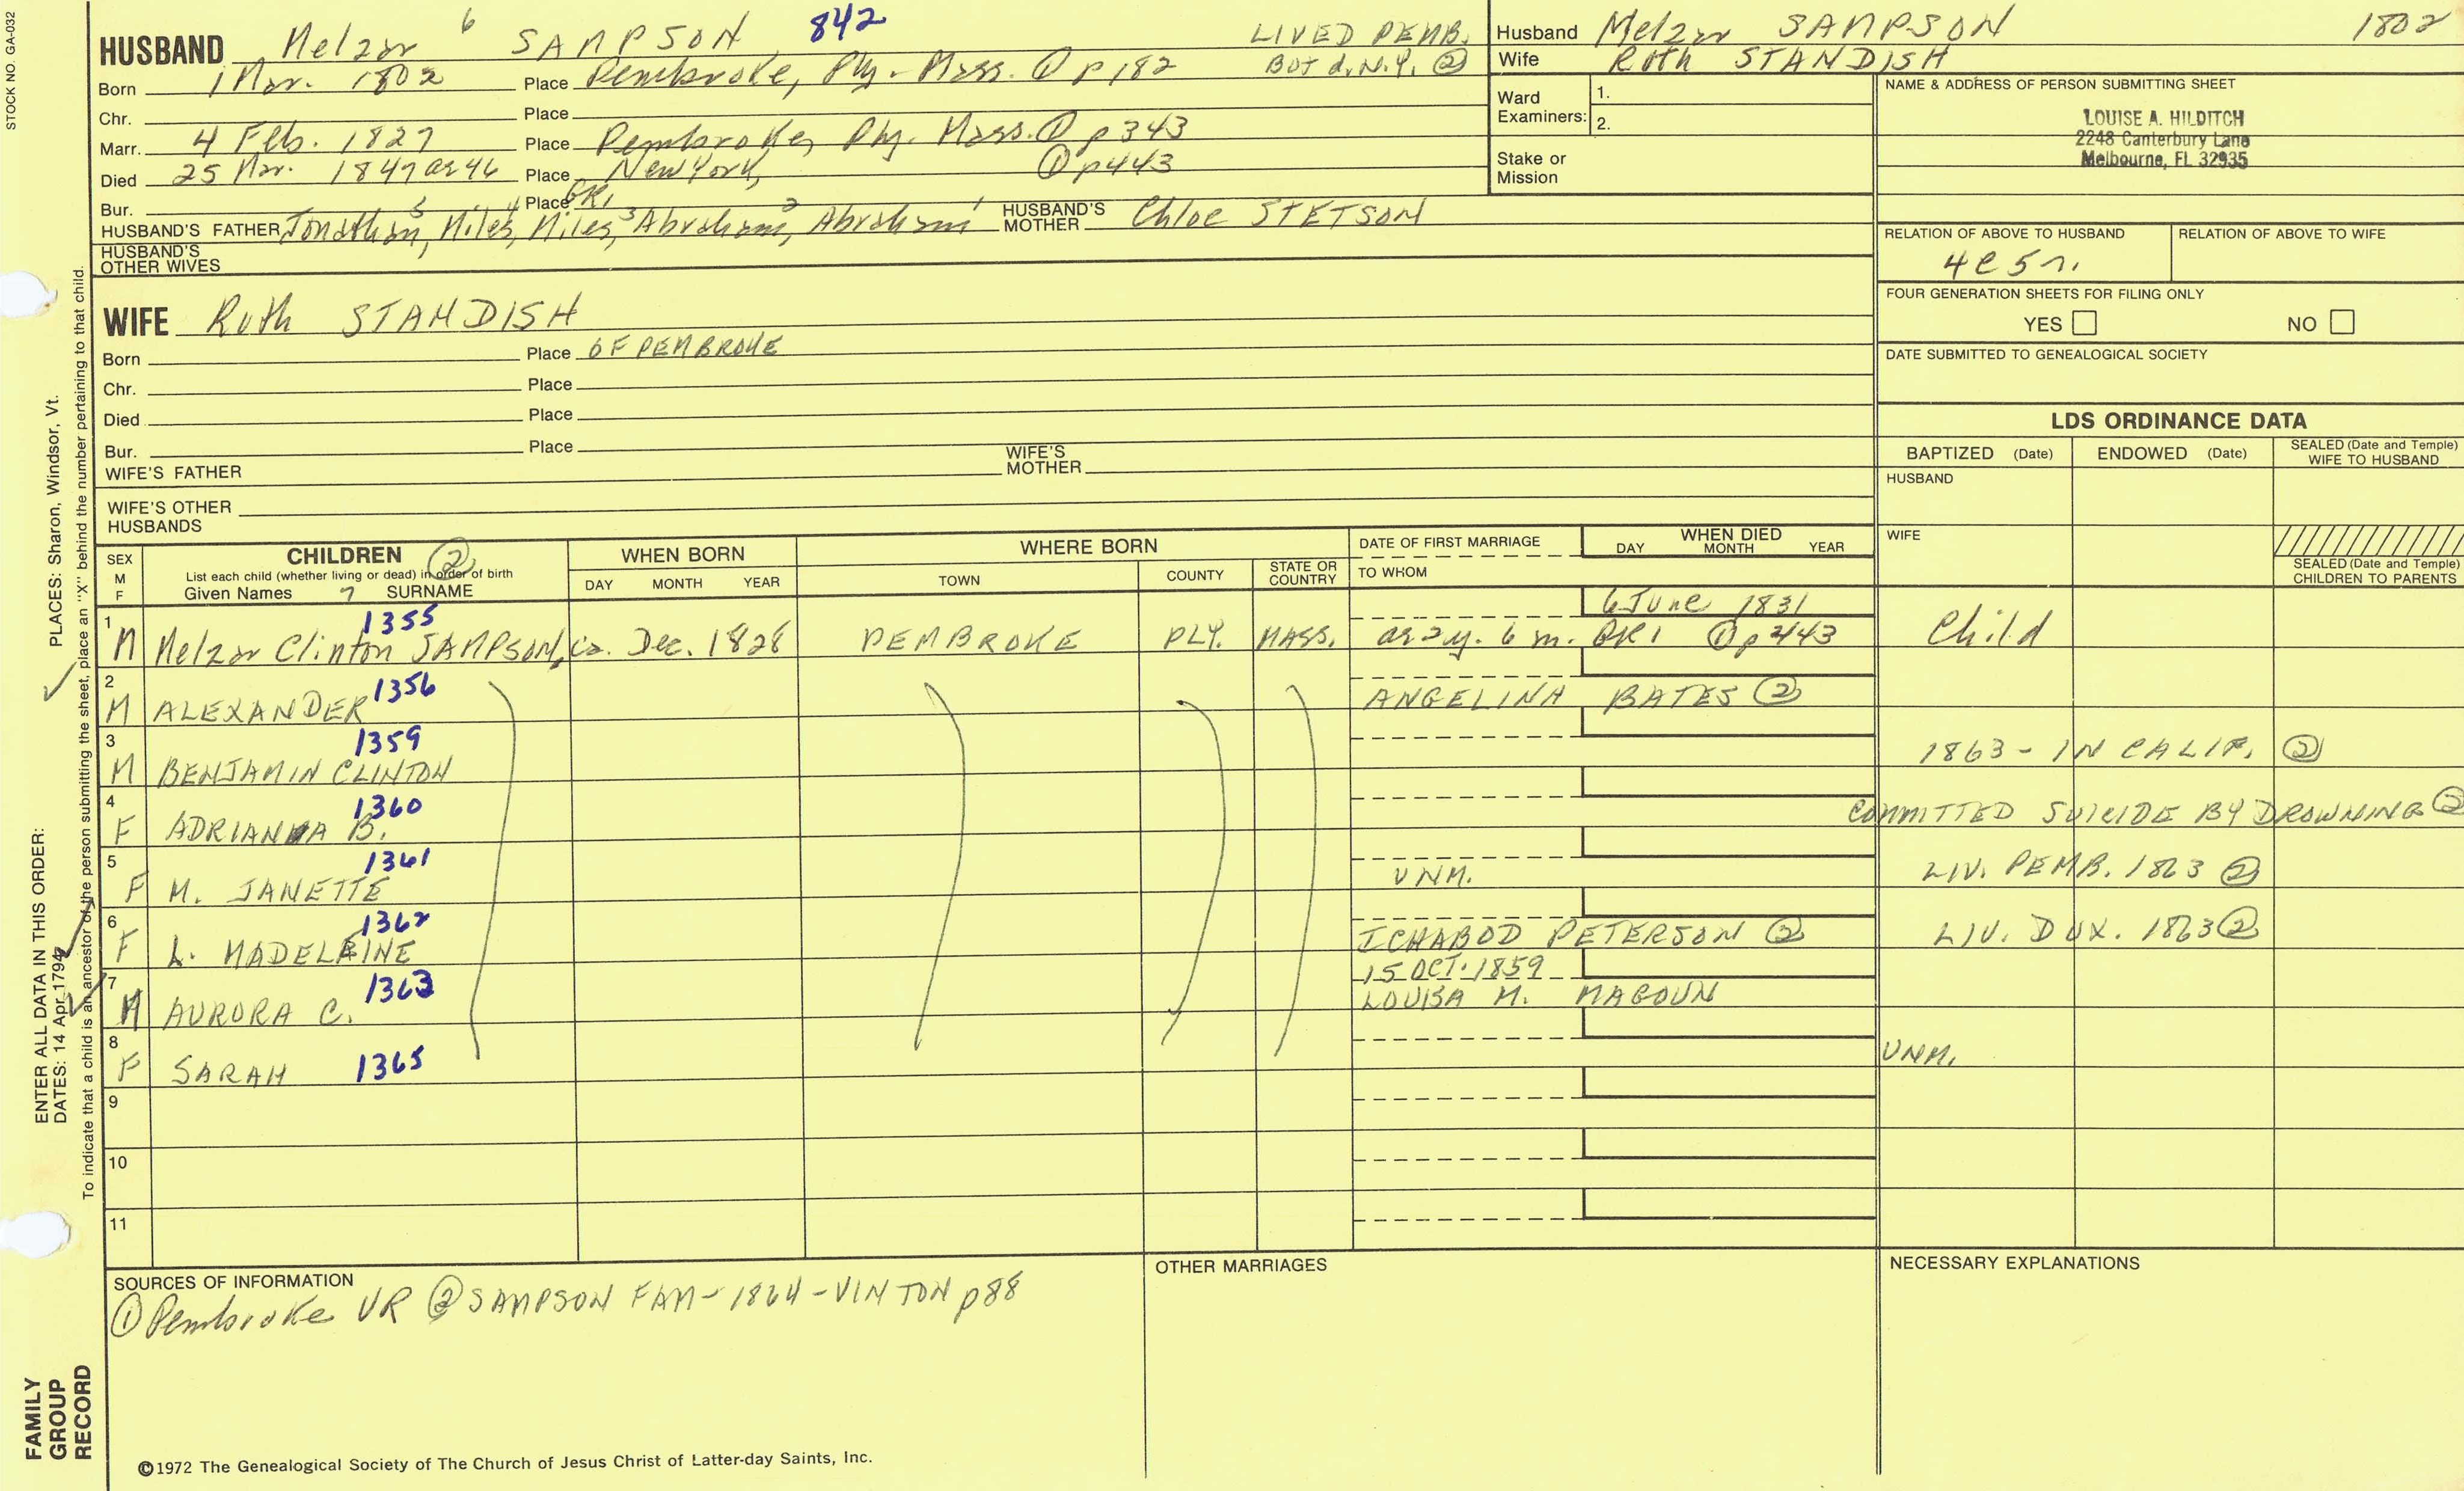 STOCK NO. GA-032
HUSBAND Melzar 6 SAMPSON 842 LIVED PEMB.
BUT d. N.Y. ②
Born 1 Mar. 1802 Place Pembroke, Ply. Mass. ① p 182
Chr. Place
Marr. 4 Feb. 1827 Place Pembroke, Ply. Mass. ① p 343
Died 25 Mar. 1847 ae 46 Place New York, ① p 443
Bur. Place GR1
HUSBAND'S FATHER Jonathan 5, Miles 4, Miles 3, Abraham 2, Abraham 1 HUSBAND'S MOTHER Chloe STETSON
HUSBAND'S OTHER WIVES
Husband Melzar SAMPSON 1802
Wife Ruth STANDISH
Ward Examiners: 1.
2.
Stake or Mission
NAME & ADDRESS OF PERSON SUBMITTING SHEET
LOUISE A. HILDITCH
2248 Canterbury Lane
Melbourne, FL 32935
RELATION OF ABOVE TO HUSBAND RELATION OF ABOVE TO WIFE
4c5r.
FOUR GENERATION SHEETS FOR FILING ONLY
YES NO
DATE SUBMITTED TO GENEALOGICAL SOCIETY
WIFE Ruth STANDISH
Born Place OF PEMBROKE
Chr. Place
Died Place
Bur. Place
WIFE'S FATHER WIFE'S MOTHER
WIFE'S OTHER HUSBANDS
LDS ORDINANCE DATA
BAPTIZED (Date) ENDOWED (Date) SEALED (Date and Temple) WIFE TO HUSBAND
HUSBAND
WIFE
SEALED (Date and Temple) CHILDREN TO PARENTS
SEX M F
CHILDREN ②
List each child (whether living or dead) in order of birth
Given Names 7 SURNAME
WHEN BORN
DAY MONTH YEAR
WHERE BORN
TOWN COUNTY STATE OR COUNTRY
DATE OF FIRST MARRIAGE
TO WHOM
WHEN DIED
DAY MONTH YEAR
1 M Melzar Clinton SAMPSON, 1355 ca. Dec. 1828 PEMBROKE PLY. MASS. 6 June 1831
ae 2 y. 6 m. GR1 ① p 443 Child
2 M ALEXANDER 1356 ANGELINA BATES ②
3 M BENJAMIN CLINTON 1359 1863 - IN CALIF. ②
4 F ADRIANNA B. 1360 COMMITTED SUICIDE BY DROWNING ②
5 F M. JANETTE 1361 UNM. LIV. PEMB. 1863 ②
6 F L. MADELEINE 1362 ICHABOD PETERSON ② LIV. DUX. 1863 ②
7 M AURORA C. 1363 15 OCT. 1859
LOUISA M. MAGOUN
8 F SARAH 1365 UNM.
9
10
11
SOURCES OF INFORMATION
① Pembroke VR ② SAMPSON FAM - 1864 - VINTON p 88
OTHER MARRIAGES
NECESSARY EXPLANATIONS
©1972 The Genealogical Society of The Church of Jesus Christ of Latter-day Saints, Inc.
ENTER ALL DATA IN THIS ORDER:
DATES: 14 Apr 1794
PLACES: Sharon, Windsor, Vt.
To indicate that a child is an ancestor of the person submitting the sheet, place an "X" behind the number pertaining to that child.
FAMILY
GROUP
RECORD